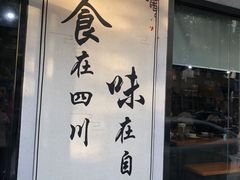 食在四川
味在自